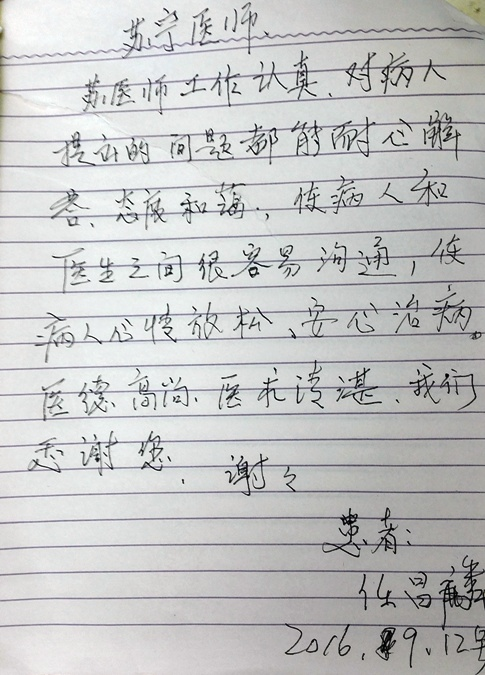 苏宁医师.
苏医师工作认真、对病人
提出的问题都能耐心解
答、态度和蔼，使病人和
医生之间很容易沟通，使
病人心情放松、安心治病。
医德高尚、医术清湛、我们
感谢您，谢々
患者：
任昌
2016.9.12号